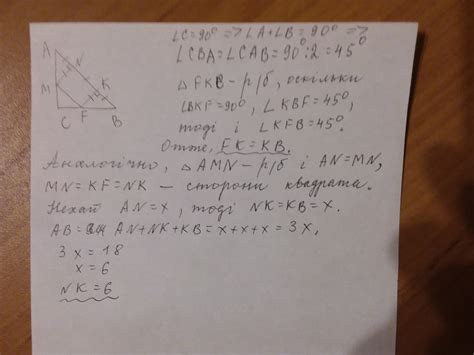 ∠C=90° => ∠A+∠B=90° =>
∠CBA=∠CAB=90°:2=45°
△FKB – р/б, оскільки
∠BKF=90°, ∠KBF=45°,
тоді і ∠KFB=45°.
Отже, FK=KB.
A
N
M
K
C
F
B
Аналогічно, △AMN – р/б і AN=MN,
MN=KF=NK – сторони квадрата.
Нехай AN=x, тоді NK=KB=x.
AB= AN+NK+KB=x+x+x=3x,
3x=18
x=6
NK=6